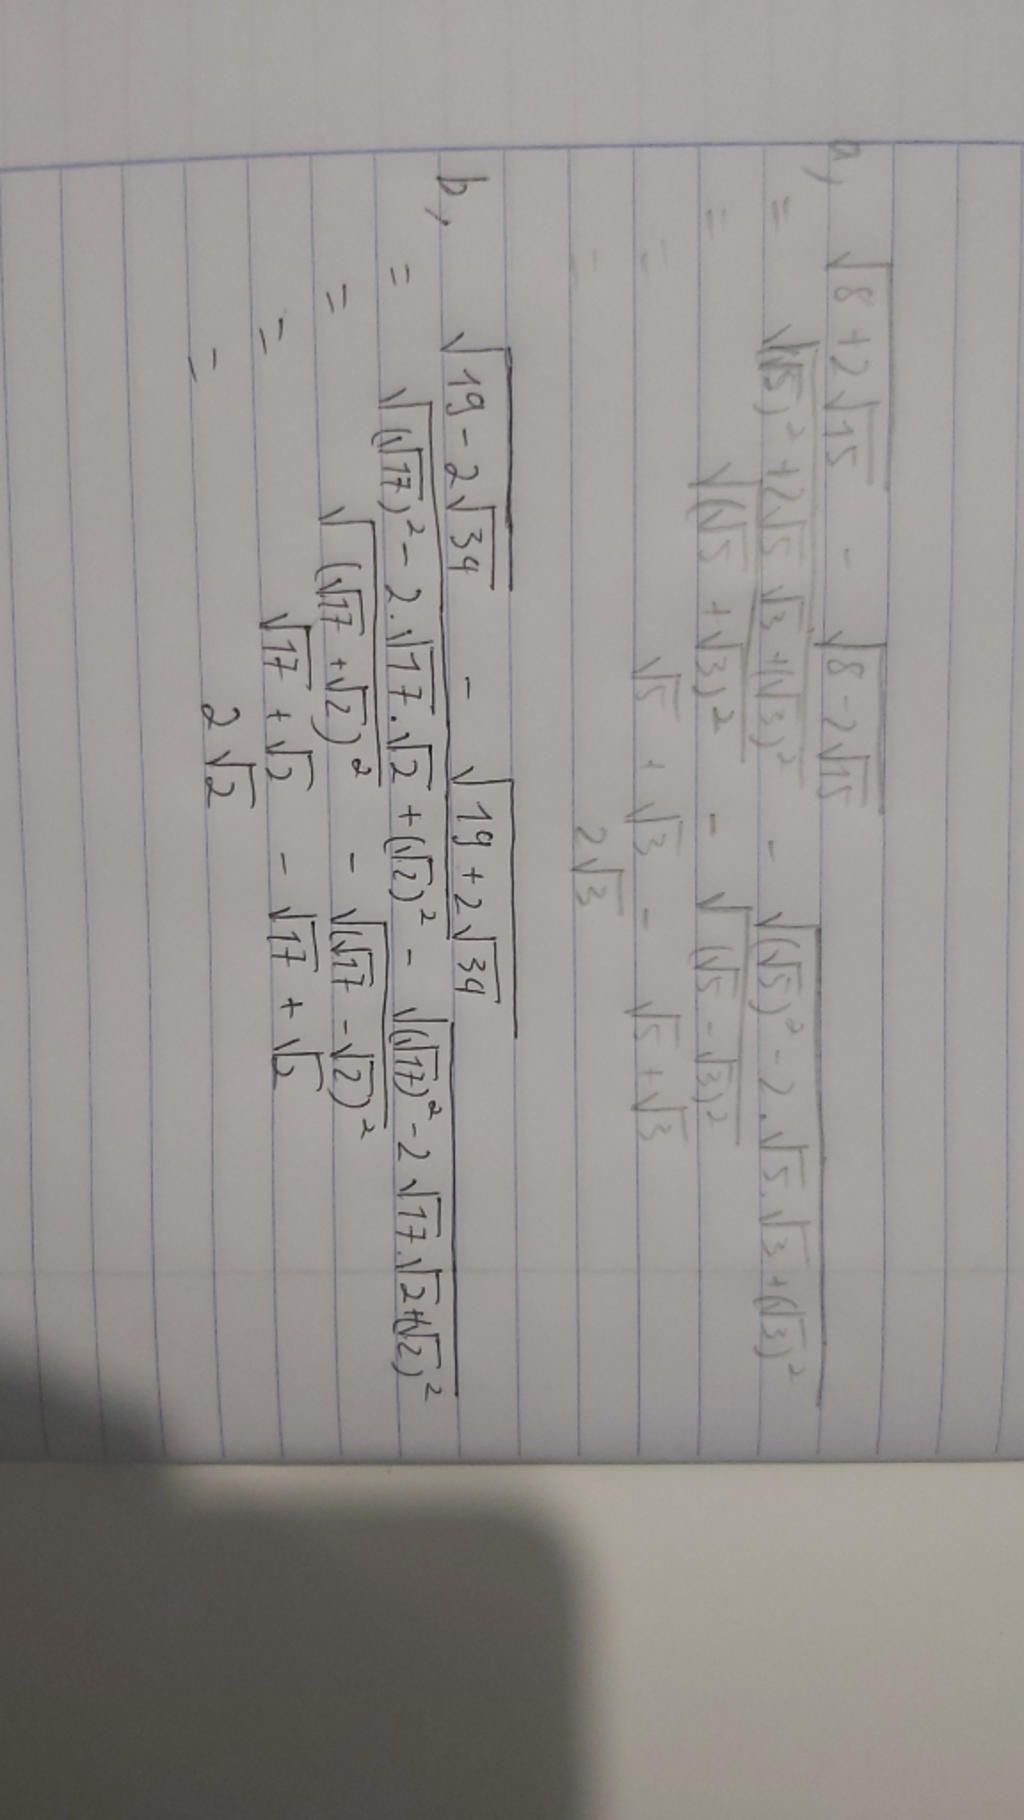 a, √(8 + 2√15) - √(8 - 2√15)
= √((√5)² + 2√5 √3 + (√3)²) - √((√5)² - 2.√5.√3 + (√3)²)
= √((√5 + √3)²) - √((√5 - √3)²)
= √5 + √3 - √5 + √3
= 2√3
b, √(19 - 2√34) - √(19 + 2√34)
= √((√17)² - 2.√17.√2 + (√2)²) - √((√17)² - 2√17.√2 + (√2)²)
= √((√17 + √2)²) - √((√17 - √2)²)
= √17 + √2 - √17 + √2
= 2√2